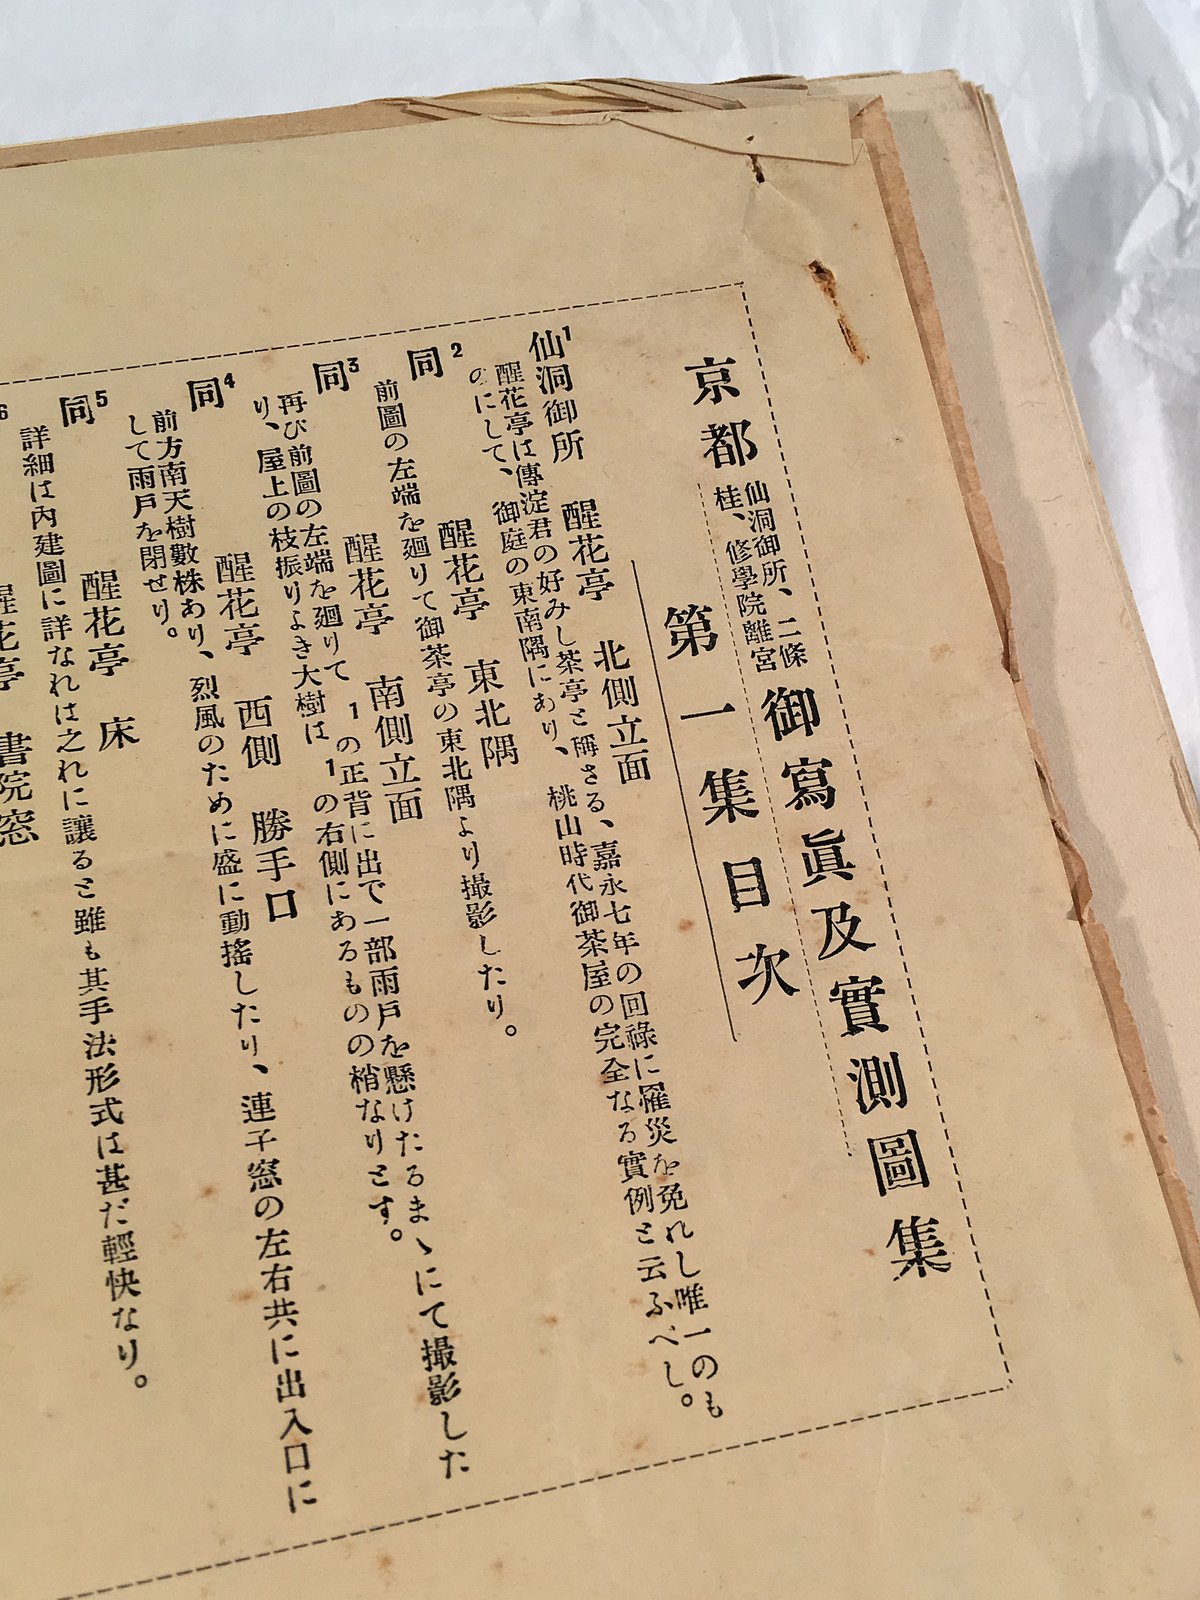 京都 仙洞御所、二條 桂、修學院離宮 御寫眞及實測圖集
第一集目次
1 仙洞御所 醒花亭 北側立面
醒花亭は傳淀君の好みし茶亭と稱さる、嘉永七年の回祿に罹災を免れし唯一のも
のにして、御庭の東南隅にあり、桃山時代御茶屋の完全なる實例と云ふべし。
2 同 醒花亭 東北隅
前圖の左端を廻りて御茶亭の東北隅より撮影したり。
3 同 醒花亭 南側立面
再び前圖の左端を廻りて 1の正背に出で一部雨戸を懸けたるまゝにて撮影した
り、屋上の枝振りよき大樹は 1の右側にあるものの梢なりとす。
4 同 醒花亭 西側 勝手口
前方南天樹數株あり、烈風のために盛に動搖したり、連子窓の左右共に出入口に
して雨戸を閉せり。
5 同 醒花亭 床
詳細は內建圖に詳なれは之れに讓ると雖も其手法形式は甚だ輕快なり。
6 醒花亭 書院窓